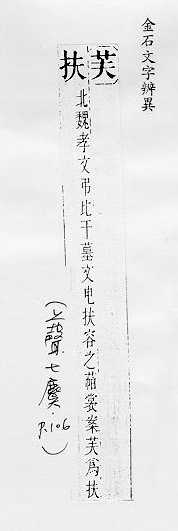 金石文字辨異
芙扶
北魏孝文弔比干墓文电扶容之葩裳案芙為扶
(上聲七麌. P.106)